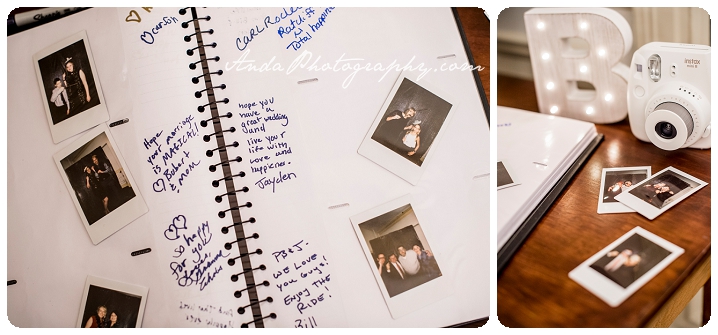 ♡ carson
hope
your marriage
is MAGICAL!
♡ Robert
& mom
♡♡
So happy
for you!!
CARL
Ratcliff
Total happiness
AndaPhotography.com
hope you
have a
great wedding
and
live your
life with
Love and
happiness.
Jayden
PB&J.
WE LOVE
YOU GUYS!
ENJOY THE
RIDE!
Bill
B
instax